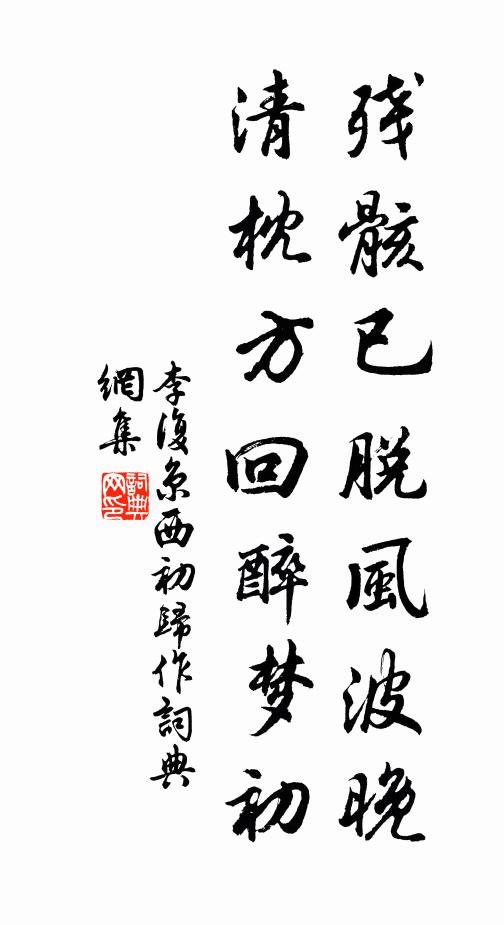 残骸已脱風波晚
清枕方回醉梦初
李復京西初歸作詞典
網集
詞典
网印